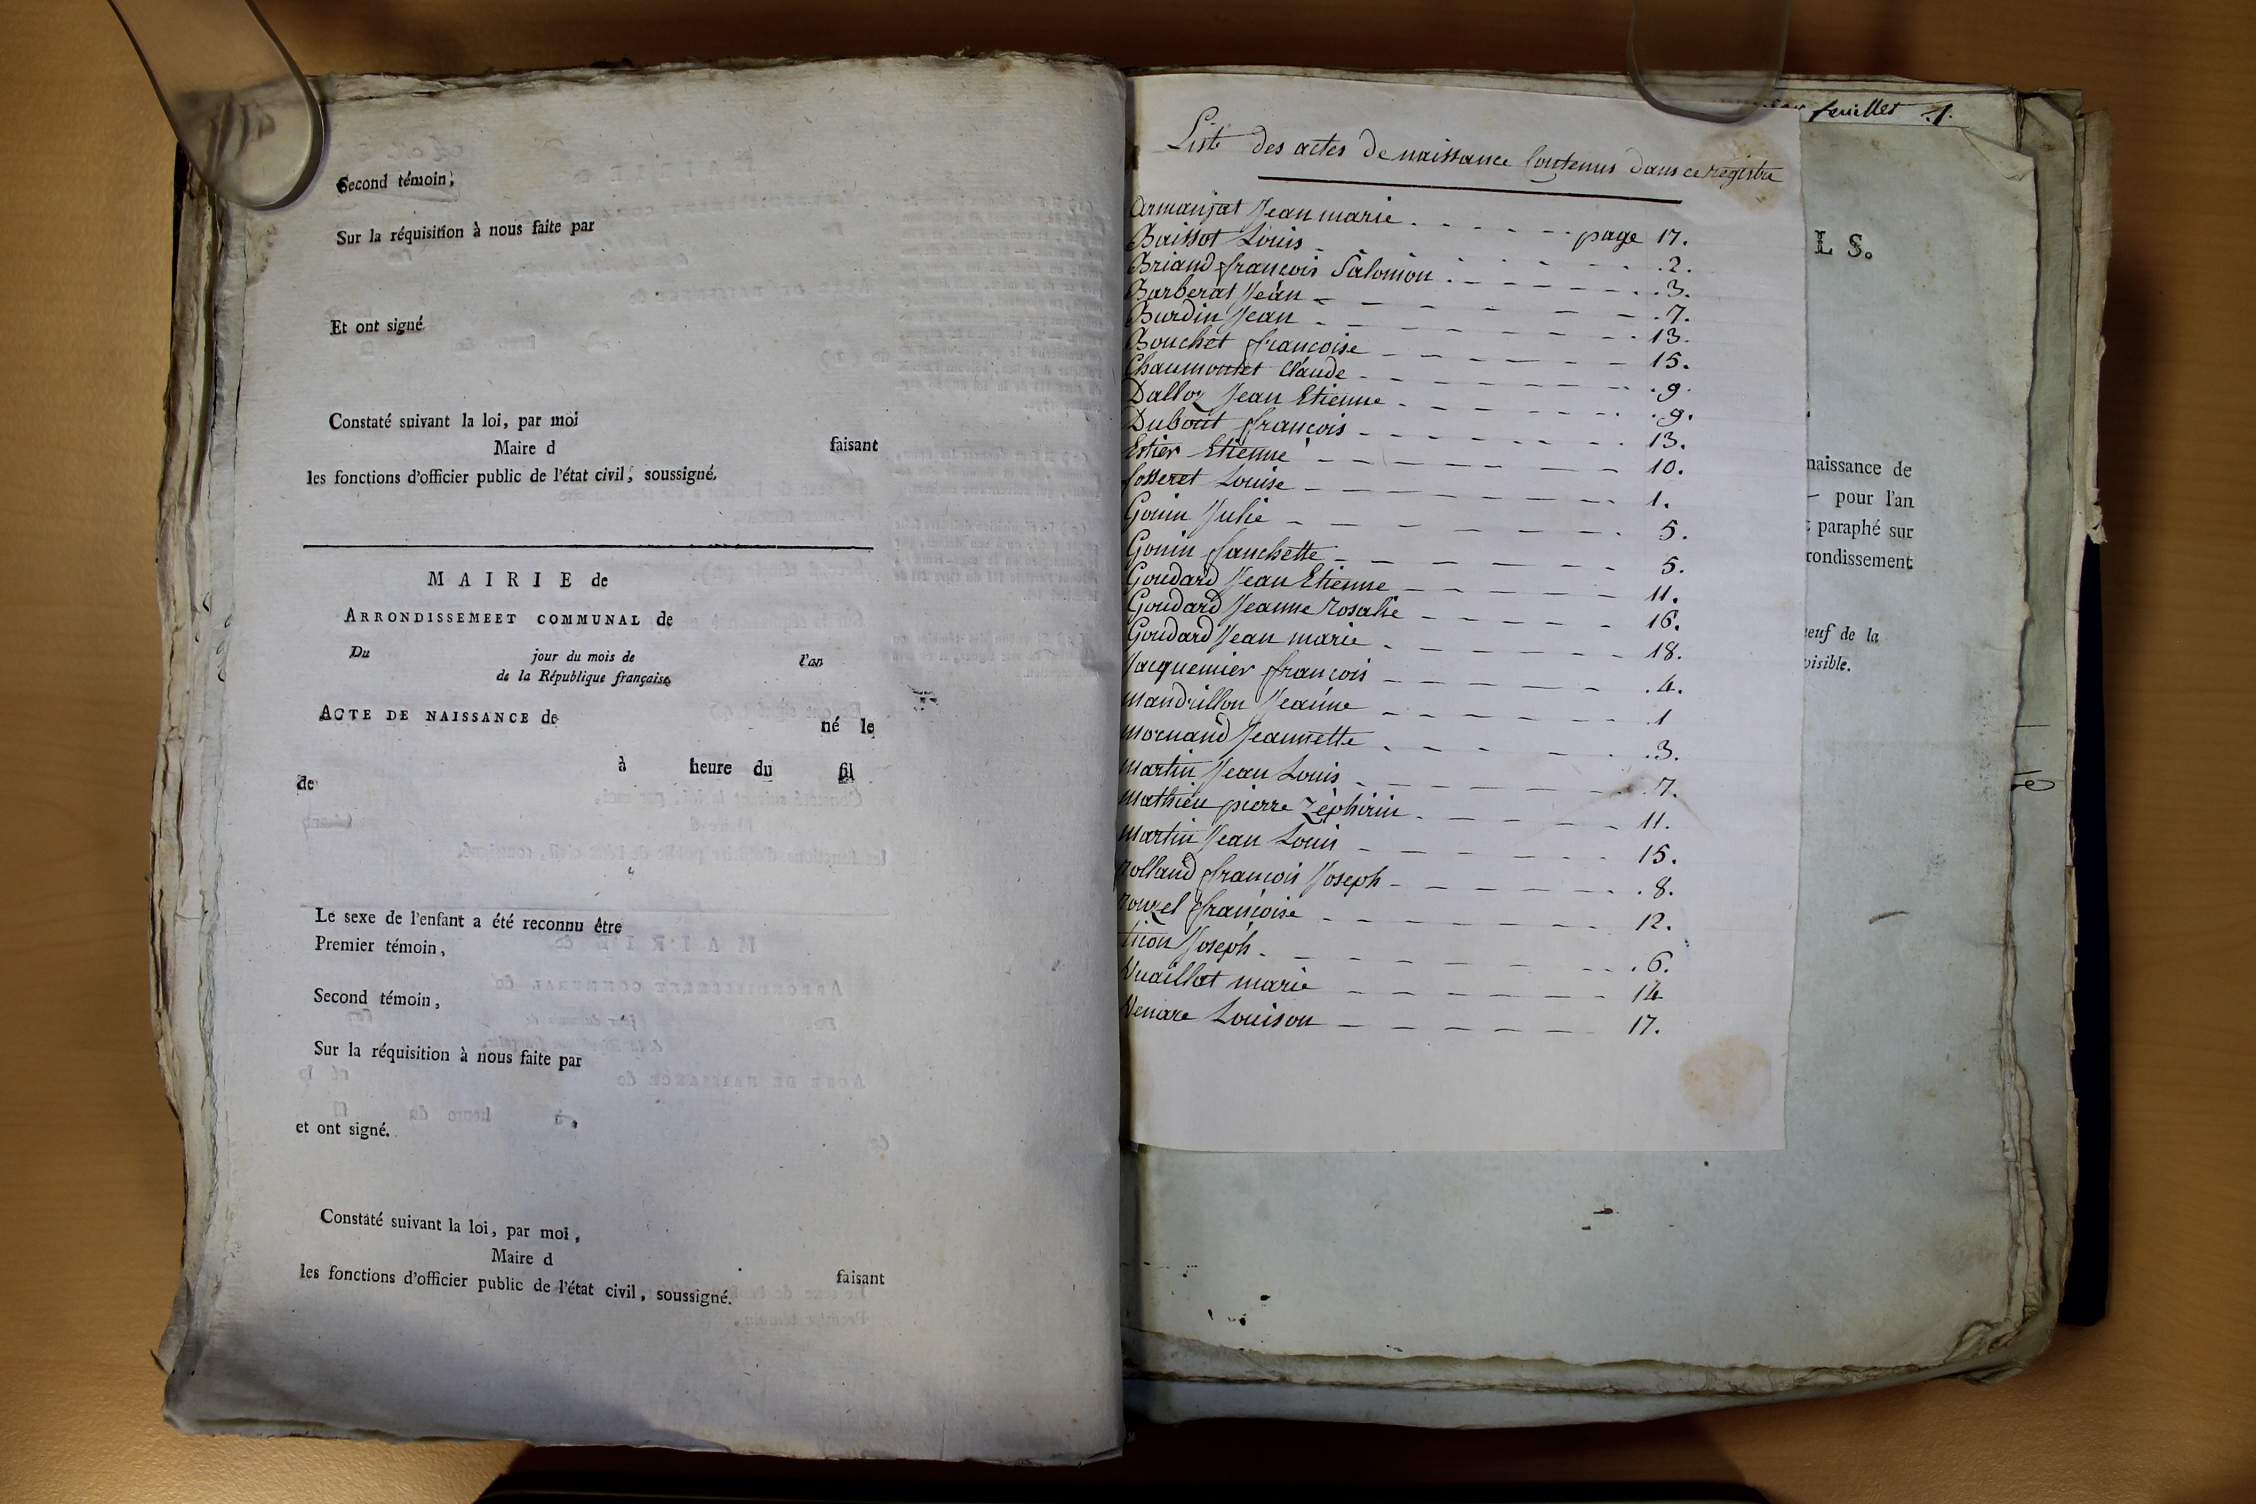 Second témoin,
Sur la réquisition à nous faite par
Et ont signé
Constaté suivant la loi, par moi
Maire d faisant
les fonctions d'officier public de l'état civil, soussigné.
MAIRIE de
ARRONDISSEMEET COMMUNAL de
Du jour du mois de l'an
de la République française
ACTE DE NAISSANCE de né le
à heure du fil
de
Le sexe de l'enfant a été reconnu être
Premier témoin,
Second témoin,
Sur la réquisition à nous faite par
et ont signé.
Constaté suivant la loi, par moi,
Maire d faisant
les fonctions d'officier public de l'état civil, soussigné.
feuillet 1.
Liste des actes de naissance Contenus dans ce registre
Armanjat Jean marie page 17.
Baissot Louis 2.
Briand françois Salomon 3.
Barberat Jean 7.
Burdin Jean 13.
Bouchet françoise 15.
Chaumontet Claude 9.
Dalloz Jean Etienne 9.
Dubout françois 13.
Estier Etienne 10.
fosseret Louise 1.
Gouin Julie 5.
Gouin fanchette 5.
Goudard Jean Etienne 11.
Goudard Jeanne Rosalie 16.
Goudard Jean marie 18.
Jacquemier françois 4.
Mandrillon Jeanne 1
Mornand Jeannette 3.
Martin Jean Louis 7.
Mathieu pierre Zéphirin 11.
Martin Jean Louis 15.
Rolland françois Joseph 8.
Rouzel françoise 12.
Joseph 6.
Vuaillat marie 14
Venare Louison 17.
LS.
naissance de
pour l'an
paraphé sur
rondissement
neuf de la
visible.